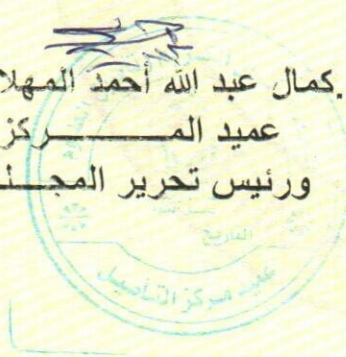 .كمال عبد الله أحمد المهلا
عميد المـــــــركز
ورئيس تحرير المجـــلـ
التاريخ
عميد مركز التأصيل